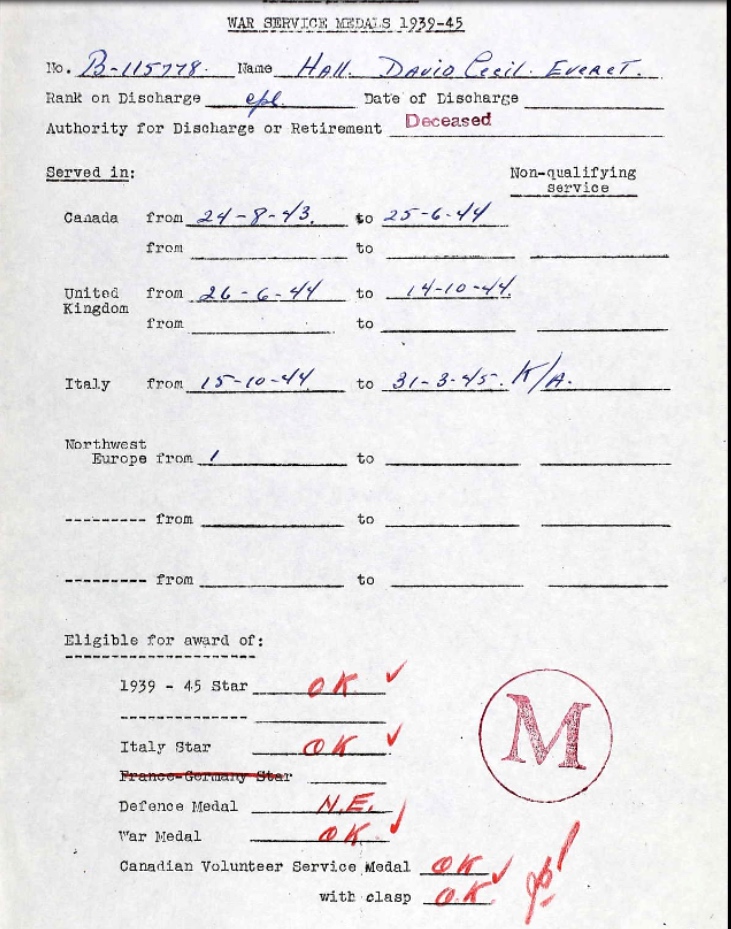 WAR SERVICE MEDALS 1939-45
No. B-115778. Name Hall. David Cecil. Everet.
Rank on Discharge cpl. Date of Discharge
Authority for Discharge or Retirement Deceased
Served in: Non-qualifying service
Canada from 24-8-43. to 25-6-44
from to
United Kingdom from 26-6-44 to 14-10-44.
from to
Italy from 15-10-44 to 31-3-45. K/A.
Northwest Europe from to
--------- from to
--------- from to
Eligible for award of:
1939 - 45 Star OK ✓
Italy Star OK ✓
France-Germany Star
Defence Medal N.E.
War Medal OK ✓
Canadian Volunteer Service Medal OK ✓
with clasp O.K.
M